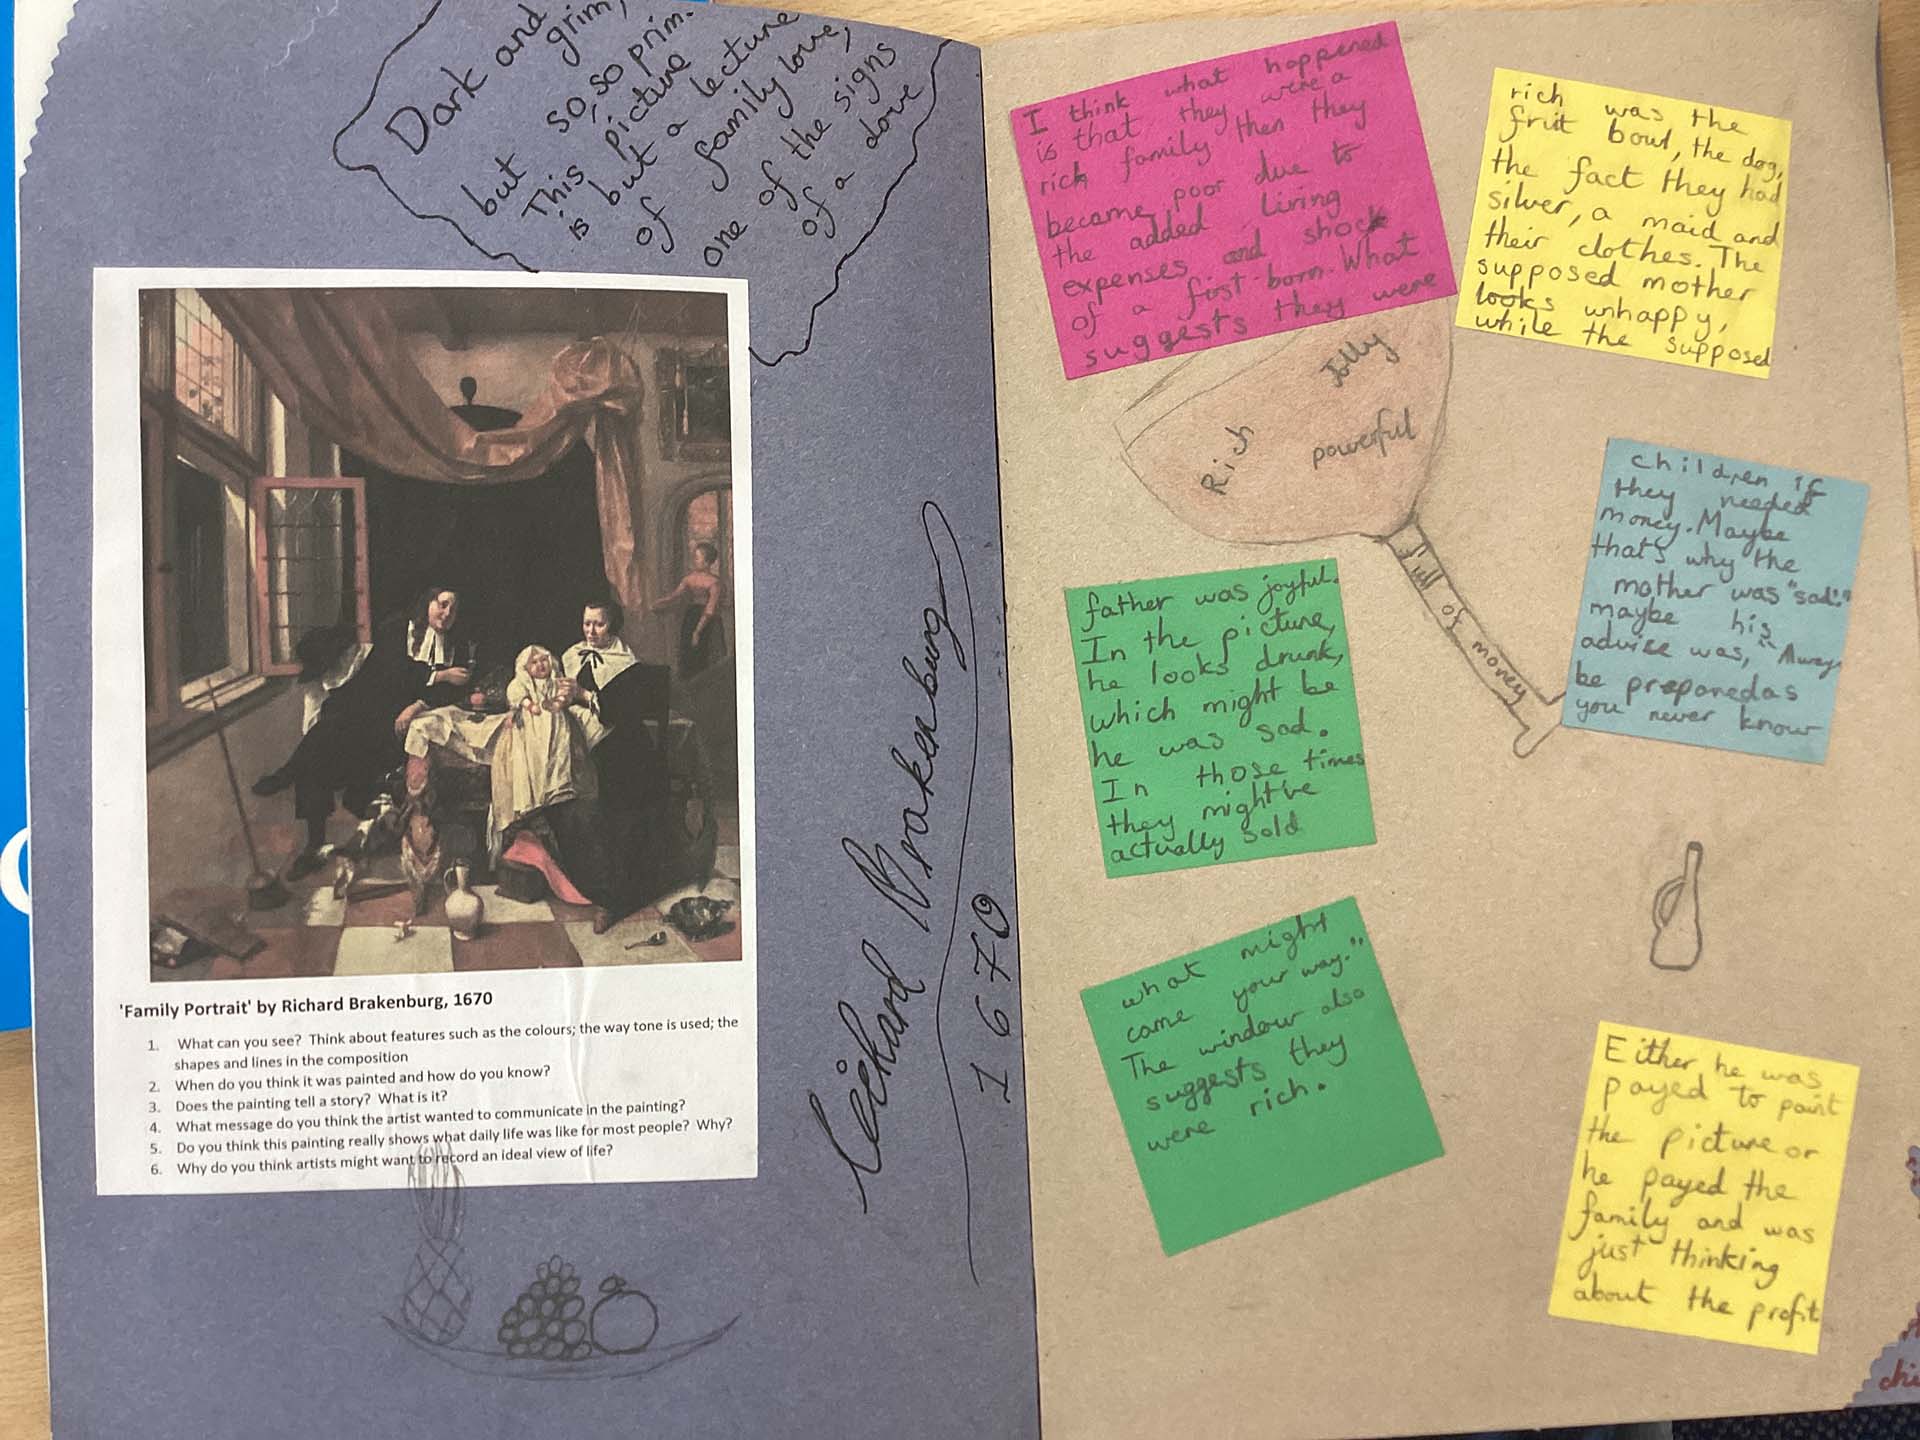 Dark and
grim,
but so, so prim.
This picture
is but a lecture
of family love,
one of the signs
of a dove
'Family Portrait' by Richard Brakenburg, 1670
1. What can you see? Think about features such as the colours; the way tone is used; the
shapes and lines in the composition
2. When do you think it was painted and how do you know?
3. Does the painting tell a story? What is it?
4. What message do you think the artist wanted to communicate in the painting?
5. Do you think this painting really shows what daily life was like for most people? Why?
6. Why do you think artists might want to record an ideal view of life?
Richard Brakenburg
1670
I think what happened
is that they were a
rich family then they
became poor due to
the added living
expenses and shock
of a first-born. What
suggests they were
rich was the
fruit bowl, the dog,
the fact they had
silver, a maid and
their clothes. The
supposed mother
looks unhappy,
while the supposed
Jolly
Rich
powerful
full of money
father was joyful.
In the picture,
he looks drunk,
which might be
he was sad.
In those times
they might've
actually sold
children if
they needed
money. Maybe
that's why the
mother was "sad."
maybe his
advice was, "Always
be preparedas
you never know
what might
came your way."
The window also
suggests they
were rich.
Either he was
payed to paint
the picture or
he payed the
family and was
just thinking
about the profit
chi